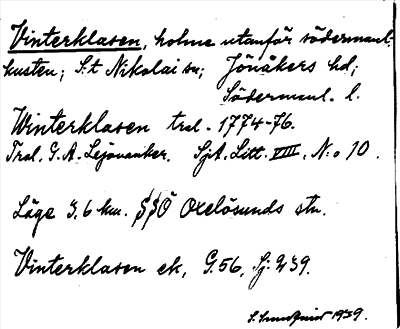 Vinterklasen, holme utanför södermanl.
kusten; S:t Nikolai sn; Jönåkers hd;
Södermanl. l.
Winterklasen tral. 1774-76.
Tral. G. A. Lejonanker. SjA. Litt. VIII, N:o 10.
Läge 3,6 km. SSÖ Oxelösunds stn.
Vinterklasen ek, G.56, Sj: 239.
1939.